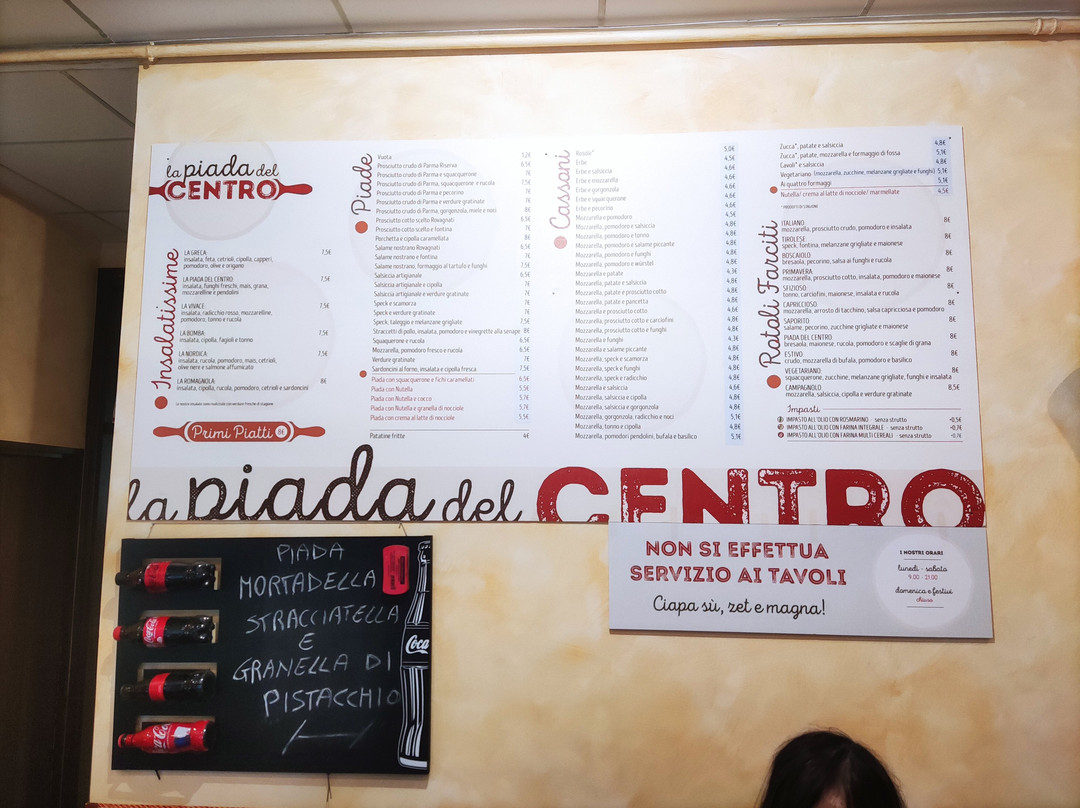 la piada del
CENTRO
Insalatissime
LA GRECA 7,5€
insalata, feta, cetrioli, cipolla, capperi,
pomodoro, olive e origano
LA PIADA DEL CENTRO 7,5€
insalata, funghi freschi, mais, grana,
mozzarelline e pendolini
LA VIVACE: 7,5€
insalata, radicchio rosso, mozzarelline,
pomodoro, tonno e rucola
LA BOMBA: 7,5€
insalata, cipolla, fagioli e tonno
LA NORDICA: 7,5€
insalata, rucola, pomodoro, mais, cetrioli,
olive nere e salmone affumicato
LA ROMAGNOLA: 8€
insalata, cipolla, rucola, pomodoro, cetrioli e sardoncini
Primi Piatti 8€
Piade
Vuota
Prosciutto crudo di Parma Riserva 6,5€
Prosciutto crudo di Parma e squacquerone 7€
Prosciutto crudo di Parma, squacquerone e rucola 7,5€
Prosciutto crudo di Parma e pecorino 7€
Prosciutto crudo di Parma e verdure gratinate 7€
Prosciutto crudo di Parma, gorgonzola, miele e noci 8€
Prosciutto cotto scelto Rovagnati 6,5€
Prosciutto cotto scelto e fontina 7€
Porchetta e cipolla caramellata 8€
Salame nostrano Rovagnati 6,5€
Salame nostrano e fontina 7€
Salame nostrano, formaggio al tartufo e funghi 7,5€
Salsiccia artigianale 6,5€
Salsiccia artigianale e cipolla 7€
Salsiccia artigianale e verdure gratinate 7€
Speck e scamorza 7€
Speck e verdure gratinate 7€
Speck, taleggio e melanzane grigliate 7,5€
Straccetti di pollo, insalata, pomodoro e vinegrette alla senape 8€
Squaquerone e rucola 6,5€
Mozzarella, pomodoro fresco e rucola 6,5€
Verdure gratinate 7€
Sardoncini al forno, insalata e cipolla fresca 7,5€
Piada con squacquerone e fichi caramellati 6,5€
Piada con Nutella 5,5€
Piada con Nutella e cocco 5,7€
Piada con Nutella e granella di nocciole 5,7€
Piada con crema al latte di nocciole 5,5€
Patatine fritte 4€
Cassoni
Rosole* 5,0€
Erbe 4,5€
Erbe e salsiccia
Erbe e mozzarella
Erbe e gorgonzola
Erbe e squacquerone
Erbe e pecorino
Mozzarella e pomodoro
Mozzarella, pomodoro e salsiccia
Mozzarella, pomodoro e tonno
Mozzarella, pomodoro e salame piccante
Mozzarella, pomodoro e funghi
Mozzarella, pomodoro e würstel
Mozzarella e patate
Mozzarella, patate e salsiccia
Mozzarella, patate e prosciutto cotto
Mozzarella, patate e pancetta
Mozzarella e prosciutto cotto
Mozzarella, prosciutto cotto e carciofini
Mozzarella, prosciutto cotto e funghi
Mozzarella e funghi
Mozzarella e salame piccante
Mozzarella, speck e scamorza
Mozzarella, speck e funghi
Mozzarella, speck e radicchio
Mozzarella e salsiccia
Mozzarella, salsiccia e cipolla
Mozzarella, salsiccia e gorgonzola
Mozzarella, gorgonzola, radicchio e noci 5,1€
Mozzarella, tonno e cipolla 4,8€
Mozzarella, pomodori pendolini, bufala e basilico 5,1€
Zucca*, patate e salsiccia 4,8€
Zucca*, patate, mozzarella e formaggio di fossa 5,1€
Cavoli* e salsiccia 4,8€
Vegetariano (mozzarella, zucchine, melanzane grigliate e funghi) 5,1€
Ai quattro formaggi 5,1€
Nutella/ crema al latte di nocciole/ marmellate 4,5€
Rotoli Farciti
ITALIANO: 8€
mozzarella, prosciutto crudo, pomodoro e insalata
TIROLESE: 8€
speck, fontina, melanzane grigliate e maionese
BOSCAIOLO: 8€
bresaola, pecorino, salsa ai funghi e rucola
PRIMAVERA: 8€
mozzarella, prosciutto cotto, insalata, pomodoro e maionese
SFIZIOSO: 8€
tonno, carciofini, maionese, insalata e rucola
CAPRICCIOSO: 8€
mozzarella, arrosto di tacchino, salsa capricciosa e pomodoro
SAPORITO: 8€
salame, pecorino, zucchine grigliate e maionese
PIADA DEL CENTRO: 8€
bresaola, maionese, rucola, pomodoro e scaglie di grana
ESTIVO: 8€
crudo, mozzarella di bufala, pomodoro e basilico
VEGETARIANO: 8€
squacquerone, zucchine, melanzane grigliate, funghi e insalata
CAMPAGNOLO: 8,5€
mozzarella, salsiccia, cipolla e verdure gratinate
Impasti
IMPASTO ALL'OLIO CON ROSMARINO - senza strutto +0,5€
IMPASTO ALL'OLIO CON FARINA INTEGRALE - senza strutto +0,7€
IMPASTO ALL'OLIO CON FARINA MULTI CEREALI - senza strutto +0,7€
la piada del CENTRO
PIADA
MORTADELLA
STRACCIATELLA
E
GRANELLA DI
PISTACCHIO
Coca
NON SI EFFETTUA
SERVIZIO AI TAVOLI
Ciapa sù, zet e magna!
I NOSTRI ORARI
lunedì - sabato
9.00 - 21.00
domenica e festivi
chiuso